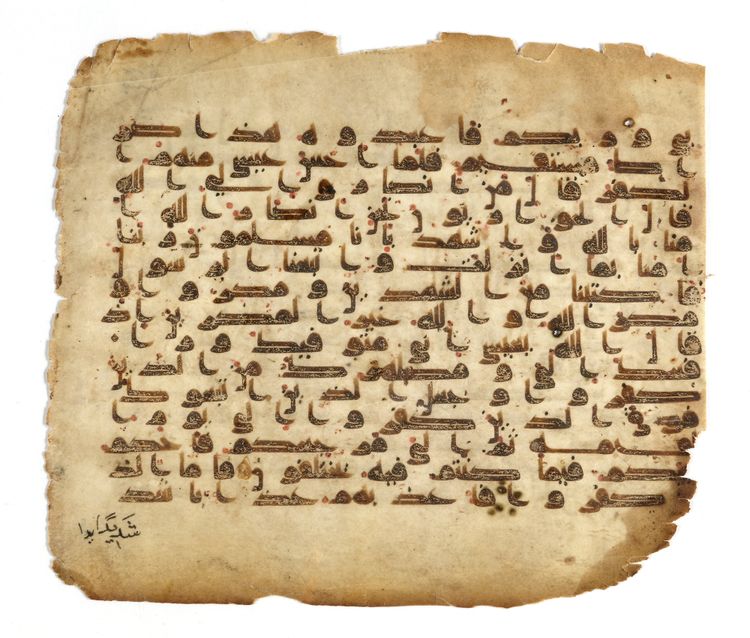 بي وربكم فاعبدوه هذا صر
اط مستقيم فلما احس عيسى منهم ا
لكفر قال من انصاري الى الله
قال الحواريون نحن انصار الله ا
منا بالله واشهد بانا مسلمون ربنا
امنا بما انزلت واتبعنا الرسول
فاكتبنا مع الشهدين ومكروا
ومكر الله والله خير المكرين اذ
قال الله يعيسى اني متوفيك ورا
فعك الي ومطهرك من الذين
كفروا وجاعل الذين اتبعوك
فوق الذين كفروا الى يوم ا
لقيمة ثم الي مرجعكم فاحكم
بينكم فيما كنتم فيه تختلفون فاما الذين
كفروا فاعذبهم عذابا شد